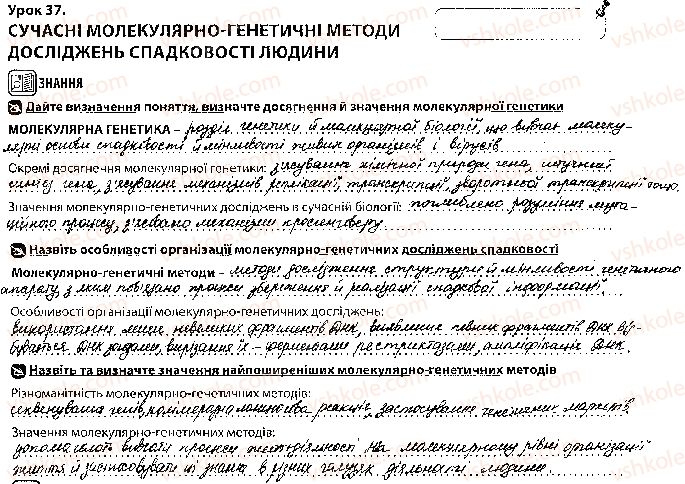 Урок 37.
СУЧАСНІ МОЛЕКУЛЯРНО-ГЕНЕТИЧНІ МЕТОДИ
ДОСЛІДЖЕНЬ СПАДКОВОСТІ ЛЮДИНИ
ЗНАННЯ
Дайте визначення поняття, визначте досягнення й значення молекулярної генетики
МОЛЕКУЛЯРНА ГЕНЕТИКА – розділ генетики й молекулярної біології, що вивчає молеку-
лярні основи спадковості й мінливості живих організмів і вірусів
Окремі досягнення молекулярної генетики: з'ясування хімічної природи гена, штучний
синтез гена, з'ясування механізмів реплікації, транскрипції, зворотної транскрипції тощо.
Значення молекулярно-генетичних досліджень в сучасній біології: поглиблено розуміння мута-
ційного процесу, з'ясовано механізми кросинговеру
Назвіть особливості організації молекулярно-генетичних досліджень спадковості
Молекулярно-генетичні методи – методи дослідження структури й мінливості генетичного
апарату, з яким пов'язано процеси збереження й реалізації спадкової інформації.
Особливості організації молекулярно-генетичних досліджень:
використання лише невеликих фрагментів ДНК, виявлення певних фрагментів ДНК від-
бувається ДНК-зондами, вирізання їх – ферментами рестриктазами, ампліфікація ДНК.
Назвіть та визначте значення найпоширеніших молекулярно-генетичних методів
Різноманітність молекулярно-генетичних методів:
секвенування генів, полімеразна ланцюгова реакція, застосування генетичних маркерів.
Значення молекулярно-генетичних методів:
допомагають вивчати процеси життєдіяльності на молекулярному рівні організації
життя й застосовувати ці знання в різних галузях діяльності людини.
vshkole.com
vshkole.com
vshkole.com
vshkole.com
vshkole.com